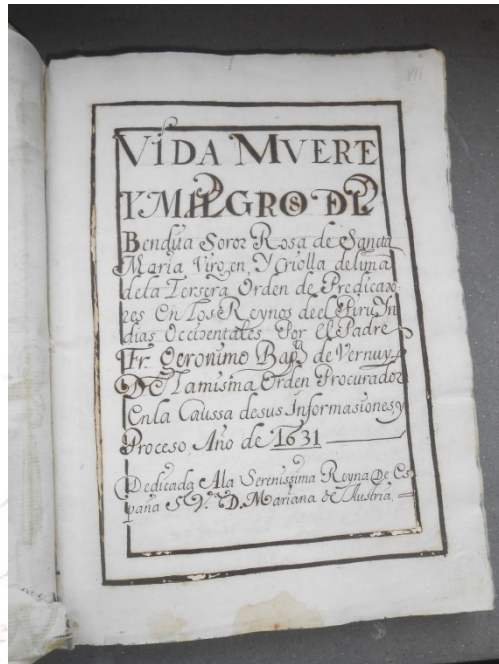 VII
VIDA MVERTE
Y MILAGROS DE
Bendita Soror Rosa de Sancta
Maria Virgen, Y Criolla de lima
de la Tersera Orden de Predicado-
res En Los Reynos de el Piru Yn
dias Occidentales Por el Padre
Fr. Geronimo Bapᵗᵃ de Vernuy
DE La misma Orden Procurador
En la Caussa de sus Informasiones y
Proceso, Año de 1631
Dedicada A la Serenissima Reyna De Es-
paña D. Mariana de Austria.